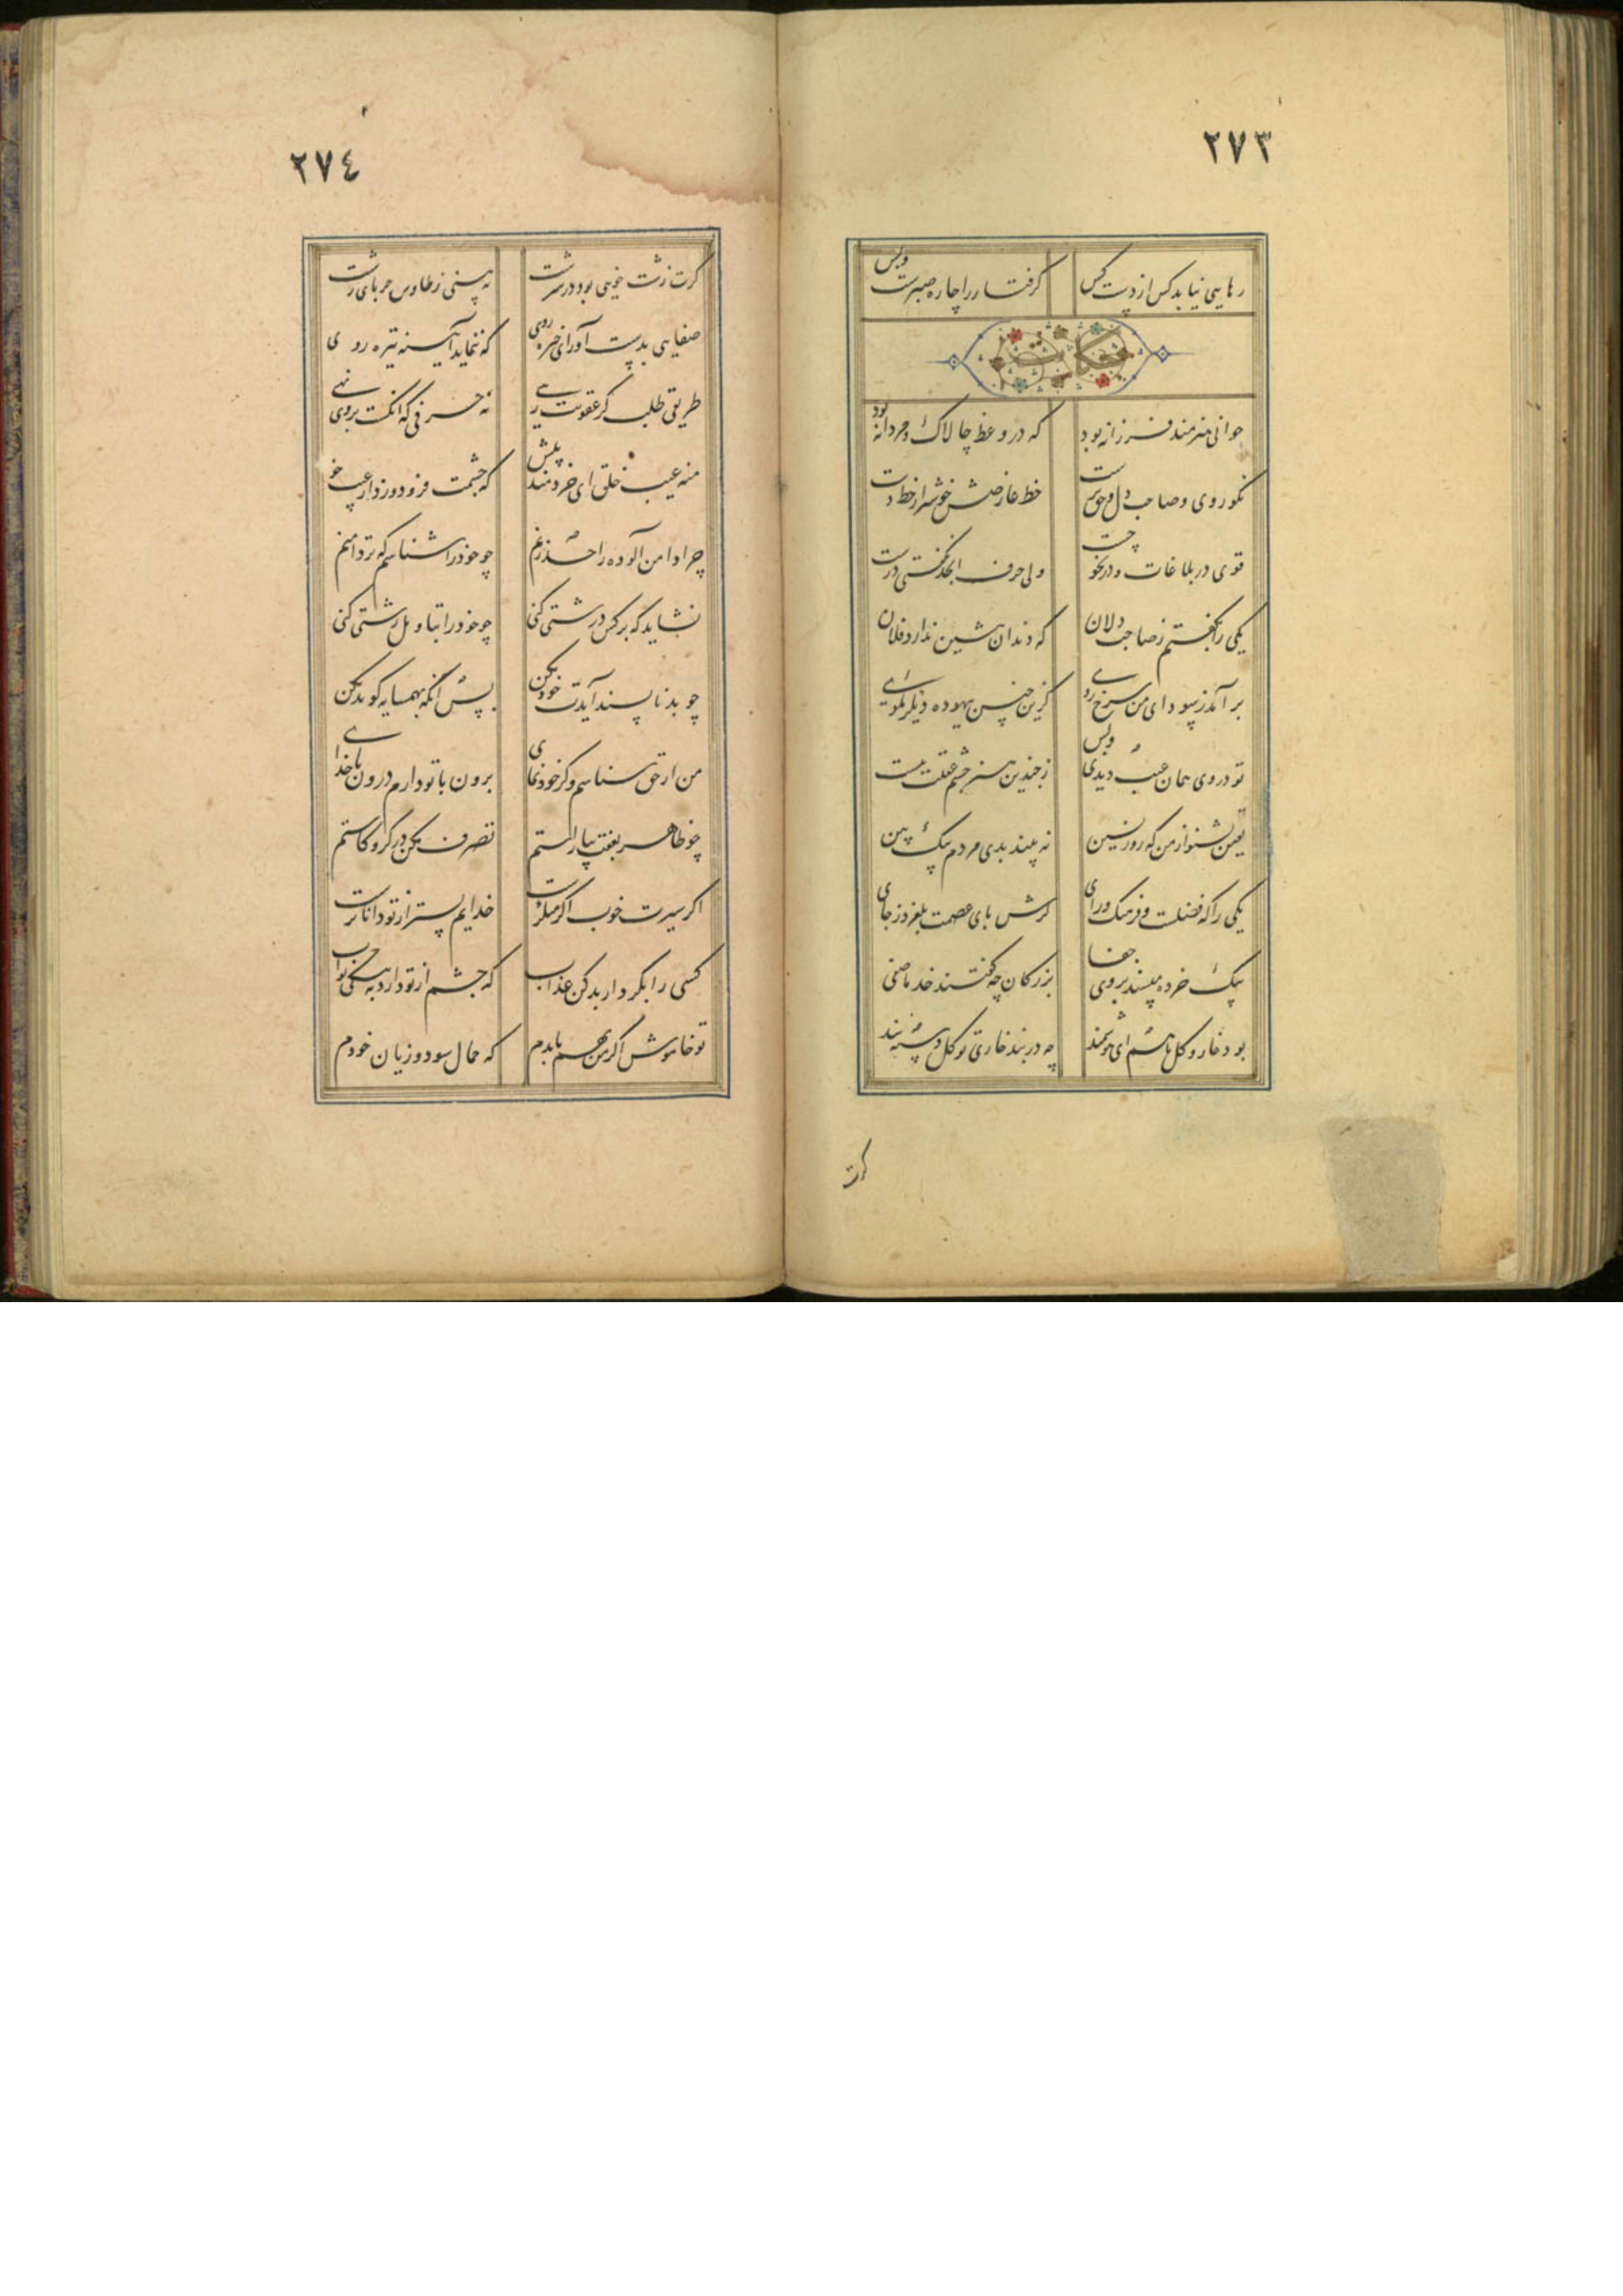 ٢٧٣
رهایی نیابد کس از دست کس گرفتار را چاره صبرست وبس
حکایت
جوانی هنرمند فرزانه بود که در وعظ چالاک و مردانه بود
نکوروی وصاحب دل وحق پرست خط عارضش خوشتر از خط دست
قوی در بلاغات ودر نحو چست ولی حرف ابجد نگفتی درست
یکی را بگفتم زصاحب دلان که دندان پیشین ندارد فلان
برآمد ز سودای من سرخ روی کزین جنس بیهوده دیگر مگوی
تو در وی همان عیب دیدی وبس ز چندین هنر چشم عقلت بست
یقین بشنو از من که روز یقین نه بیند بدی مردم نیک بین
یکی را که فضلست و فرهنگ ورای گرش پای عصمت بلغزد ز جای
بیک خرده مپسند بروی جفا بزرگان چه گفتند خذ ما صفی
بود خار وگل با هم ای هوشمند چه در بند خاری تو گل دسته بند
کرت
٢٧٤
کرت زشت خویی بود در سرشت نه بینی ز طاوس جز پای زشت
صفایی بدست آور ای خیره روی که ننماید آیینه تیره روی
طریقی طلب کز عقوبت رهی نه حرفی که انگشت بروی نهی
منه عیب خلق ای خردمند پیش که چشمت فرو دوزد از عیب خویش
چرا دامن آلوده را حد زنم چو خود را شناسم که تر دامنم
نشاید که بر کس درشتی کنی چو خود را بتاویل پشتی کنی
چو بد ناپسند آیدت خود مکن پس آنگه بهمسایه گو بد مکن
من ار حق شناسم وگر خود نمای برون با تو دارم درون با خدای
چو ظاهر بعفت بیاراستم تصرف مکن در کژ و کاستم
اگر سیرت خوب اگر منکرست خدایم بسر از تو داناترست
کسی را بکردار بد کن عذاب که چشم از تو دارد به نیکی ثواب
تو خاموش اگر من بهم یا بدم که حمال سود و زیان خودم